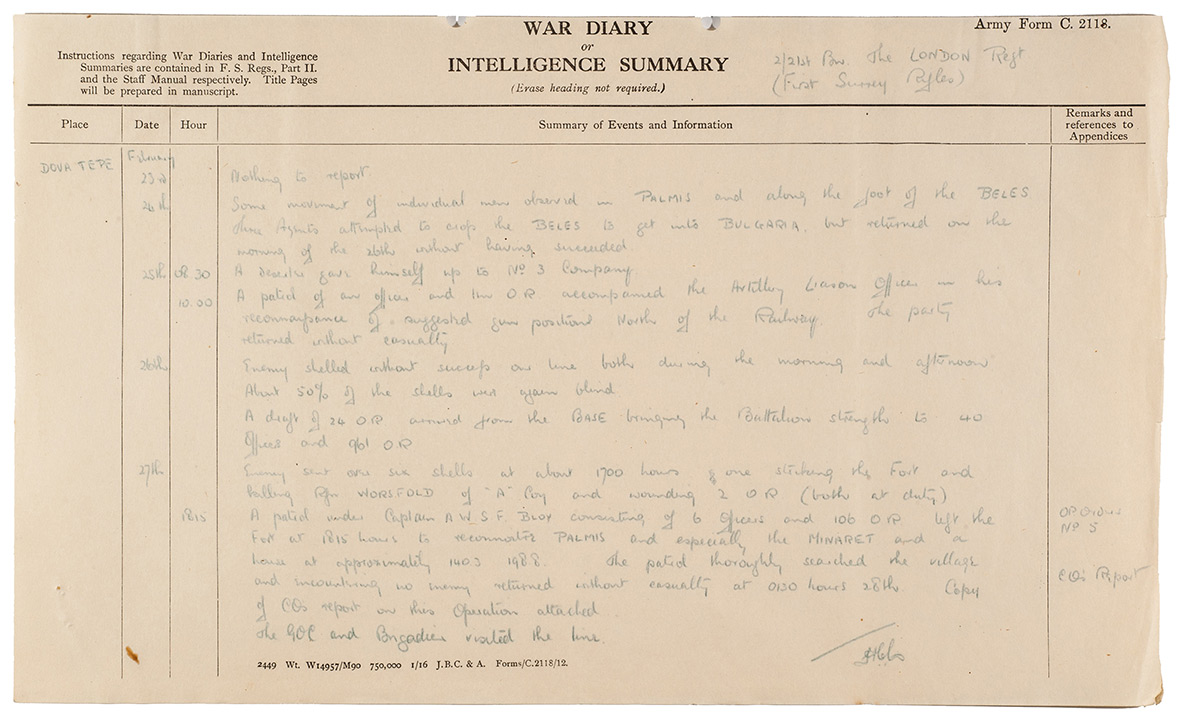 WAR DIARY
or
INTELLIGENCE SUMMARY
(Erase heading not required.)
Army Form C. 2118.
Instructions regarding War Diaries and Intelligence
Summaries are contained in F. S. Regs., Part II.
and the Staff Manual respectively. Title Pages
will be prepared in manuscript.
2/21st Bn. The LONDON Regt
(First Surrey Rifles)
Place Date Hour Summary of Events and Information Remarks and
references to
Appendices
DOVA TEPE February
23rd Nothing to report.
24th Some movement of individual men observed in PALMIS and along the foot of the BELES
Three Agents attempted to cross the BELES to get into BULGARIA, but returned on the
morning of the 26th without having succeeded.
25th 08.30 A deserter gave himself up to No 3 Company.
10.00 A patrol of an officer and ten O R accompanied the Artillery Liason Officer in his
reconnaissance of suggested gun positions North of the Railway. The party
returned without casualty
26th Enemy shelled without success our line both during the morning and afternoon
About 50% of the shells were again blind.
A draft of 24 O R arrived from the BASE bringing the Battalion strength to 40
Officers and 961 O R
27th Enemy sent over six shells at about 1700 hours one striking the Fort and
killing Rfn WORSFOLD of "A" Coy and wounding 2 O R (both at duty)
1815 A patrol under Captain A W S F. BLOX consisting of 6 Officers and 106 O R left the OP Orders
Fort at 1815 hours to reconnoitre PALMIS and especially the MINARET and a No 5
house at approximately 1403 1988. The patrol thoroughly searched the village
and encountering no enemy returned without casualty at 0130 hours 28th. Copy CO's Report
of COs report on this Operation attached.
The GOC and Brigadier visited the line.
2449 Wt. W14957/M90 750,000 1/16 J.B.C. & A. Forms/C.2118/12.